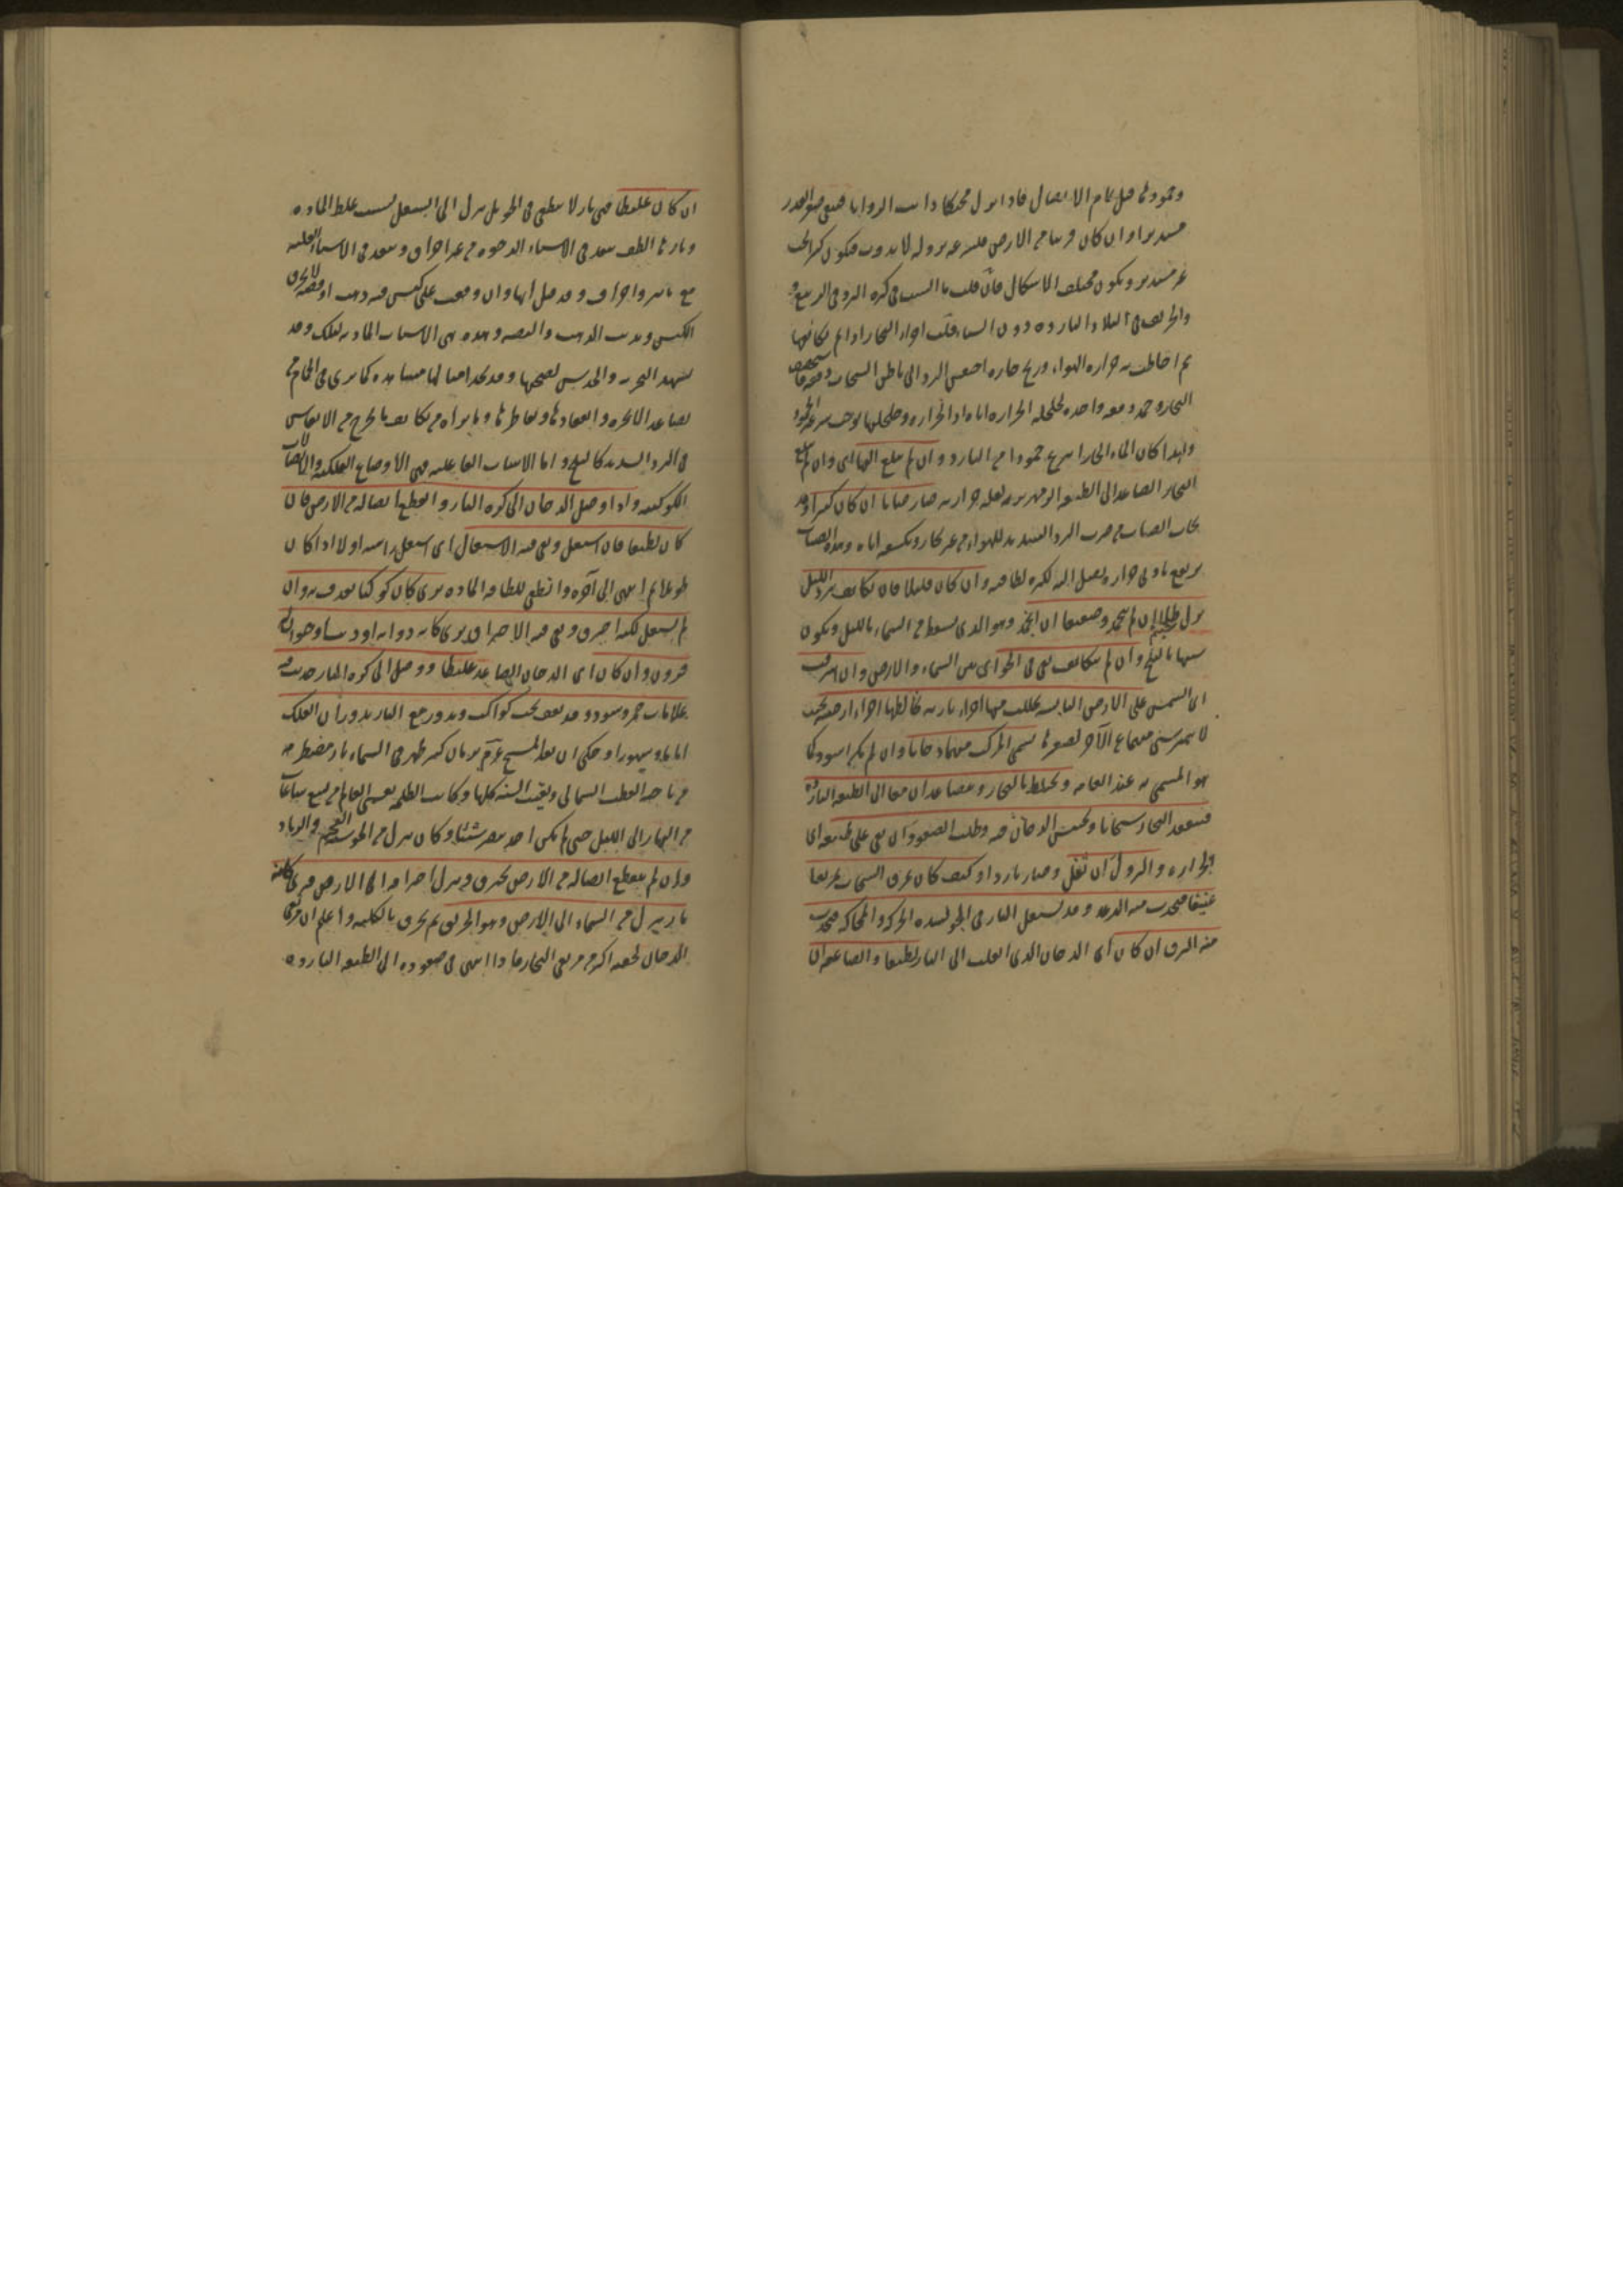 وجمودها قبل تمام الاتصال فاذا نزل محتكا ذابت الزوايا فيبقى صغير القدر
مستديرا وان كان قريبا من الارض فلسرعة نزوله لا يذوب فيكون كبير الحب
غير مستدير ويكون مختلف الاشكال فان قلت ما السبب فى كثرة البرد فى الربيع
والخريف فى البلاد الباردة دون الشتاء قلت اجزاء البخار اذا لم تكاثفها
ثم احاطت به حرارة الهواء وريح حارة احتقن البرد الى باطن السحاب
البخار وجمد دفعة واحدة لتخلخله الحرارة اياه اذ الحرارة وتخلخلها يوجب سرعة الجمود
ولهذا كان الماء الحار اسرع جمودا من البارد وان لم يبلغ اليها اى وان لم يبلغ
البخار الصاعد الى الطبقة الزمهريرية لقلة حرارته صار ضبابا ان كان كثيرا وقد
يحدث الضباب من ضرب البرد الشديد للهواء من غير بخار وتكثيفه اياه وهذا الضباب
يرتفع بادنى حرارة يصل اليه لكثرة لطافته وان كان قليلا فان تكاثف ببرد الليل
نزل طلا ان لم يتجمد وصقيعا ان انجمد وهو الذى يسقط من السماء بالليل ويكون
شبيها بالثلج وان لم يتكاثف بقى فى الجو اى بين السماء والارض وان اشرقت
اى الشمس على الارض اليابسة تحللت منها اجزاء نارية تخالطها اجزاء ارضية بحيث
لا يتميز شئ منهما عن الآخر لصغرها يسمى المركب منهما دخانا وان لم يكن اسود كما
هو المسمى به عند العامة ويختلط بالبخار ويتصاعدان معا الى الطبقة الباردة
فينعقد البخار سحابا ويحتبس الدخان فيه وطلب الصعود ان بقى على طبيعة اى
الحرارة والنزول ان ثقل وصار باردا وكيف كان يمزق السحاب تمزيقا
عنيفا فيحدث منه الرعد وقد يشتعل النار فى الجو لشدة الحركة والمحاكة فيحدث
منه البرق ان كان اى الدخان الذى انقلب الى النار لطيفا والصاعقة اى
ان كان غليظا فهى نار لا تنطفى فى الجو بل تنزل الى السفل لسبب غلظ المادة
ونارها الطف ينفذ فى الاشياء الرخوة من غير احراق وينفذ فى الاشياء الصلبة
مع تاثير واحراق وقد قيل انها وان وقعت على كيس فيه ذهب او فضة لا يحرق
الكيس ويذيب الذهب والفضة وهذه هى الاسباب المادية لتلك وقد
يشهد التجربة والحدس لصحتها وقد نجد امثالها مشاهدة كما نرى فى الحمام من
تصاعد الابخرة وانعقادها وتقاطرها وما نراه من تكاثف ما يخرج من الانفاس
فى البرد الشديد كالثلج واما الاسباب الفاعلية فهى الاوضاع الفلكية والاتصالات
الكوكبية واذا وصل الدخان الى كرة النار وانقطع اتصاله من الارض فان
كان لطيفا فان اشتعل وبقى فيه الاشتعال اى اشتعل راسه اولا اذا كان
طويلا ثم انتهى الى آخره وانطفى للطافة المادة يرى كان كوكبا يقذف به وان
لم يشتعل لكنه احترق وبقى فيه الاحتراق يرى كانه ذوابة او ذنب او حيوان له
قرون وان كان اى الدخان الصاعد غليظا ووصل الى كرة النار حدث فيه
علامات حمر وسود وقد يقف تحت كواكب ويدور مع النار بدوران الفلك
اياما وشهورا وحكى ان بعد المسيح عم بزمان كثير ظهر فى السماء نار مضطرمة
من ناحية القطب الشمالى وبقيت السنة كلها وكانت الظلمة تغشى العالم من تسع ساعات
من النهار الى الليل حتى لم يكن احد يبصر شيئا وكان ينزل من الجو شبه الهشيم والرماد
وان لم ينقطع اتصاله من الارض يحترق وينزل احتراقه الى الارض فيرى كانه
نار ينزل من السماء الى الارض وهو الحريق ثم يحرق بالكلية واعلم ان ترقى
الدخان لخفته اكثر من ترقى البخار فاذا انتهى فى صعوده الى الطبقة الباردة